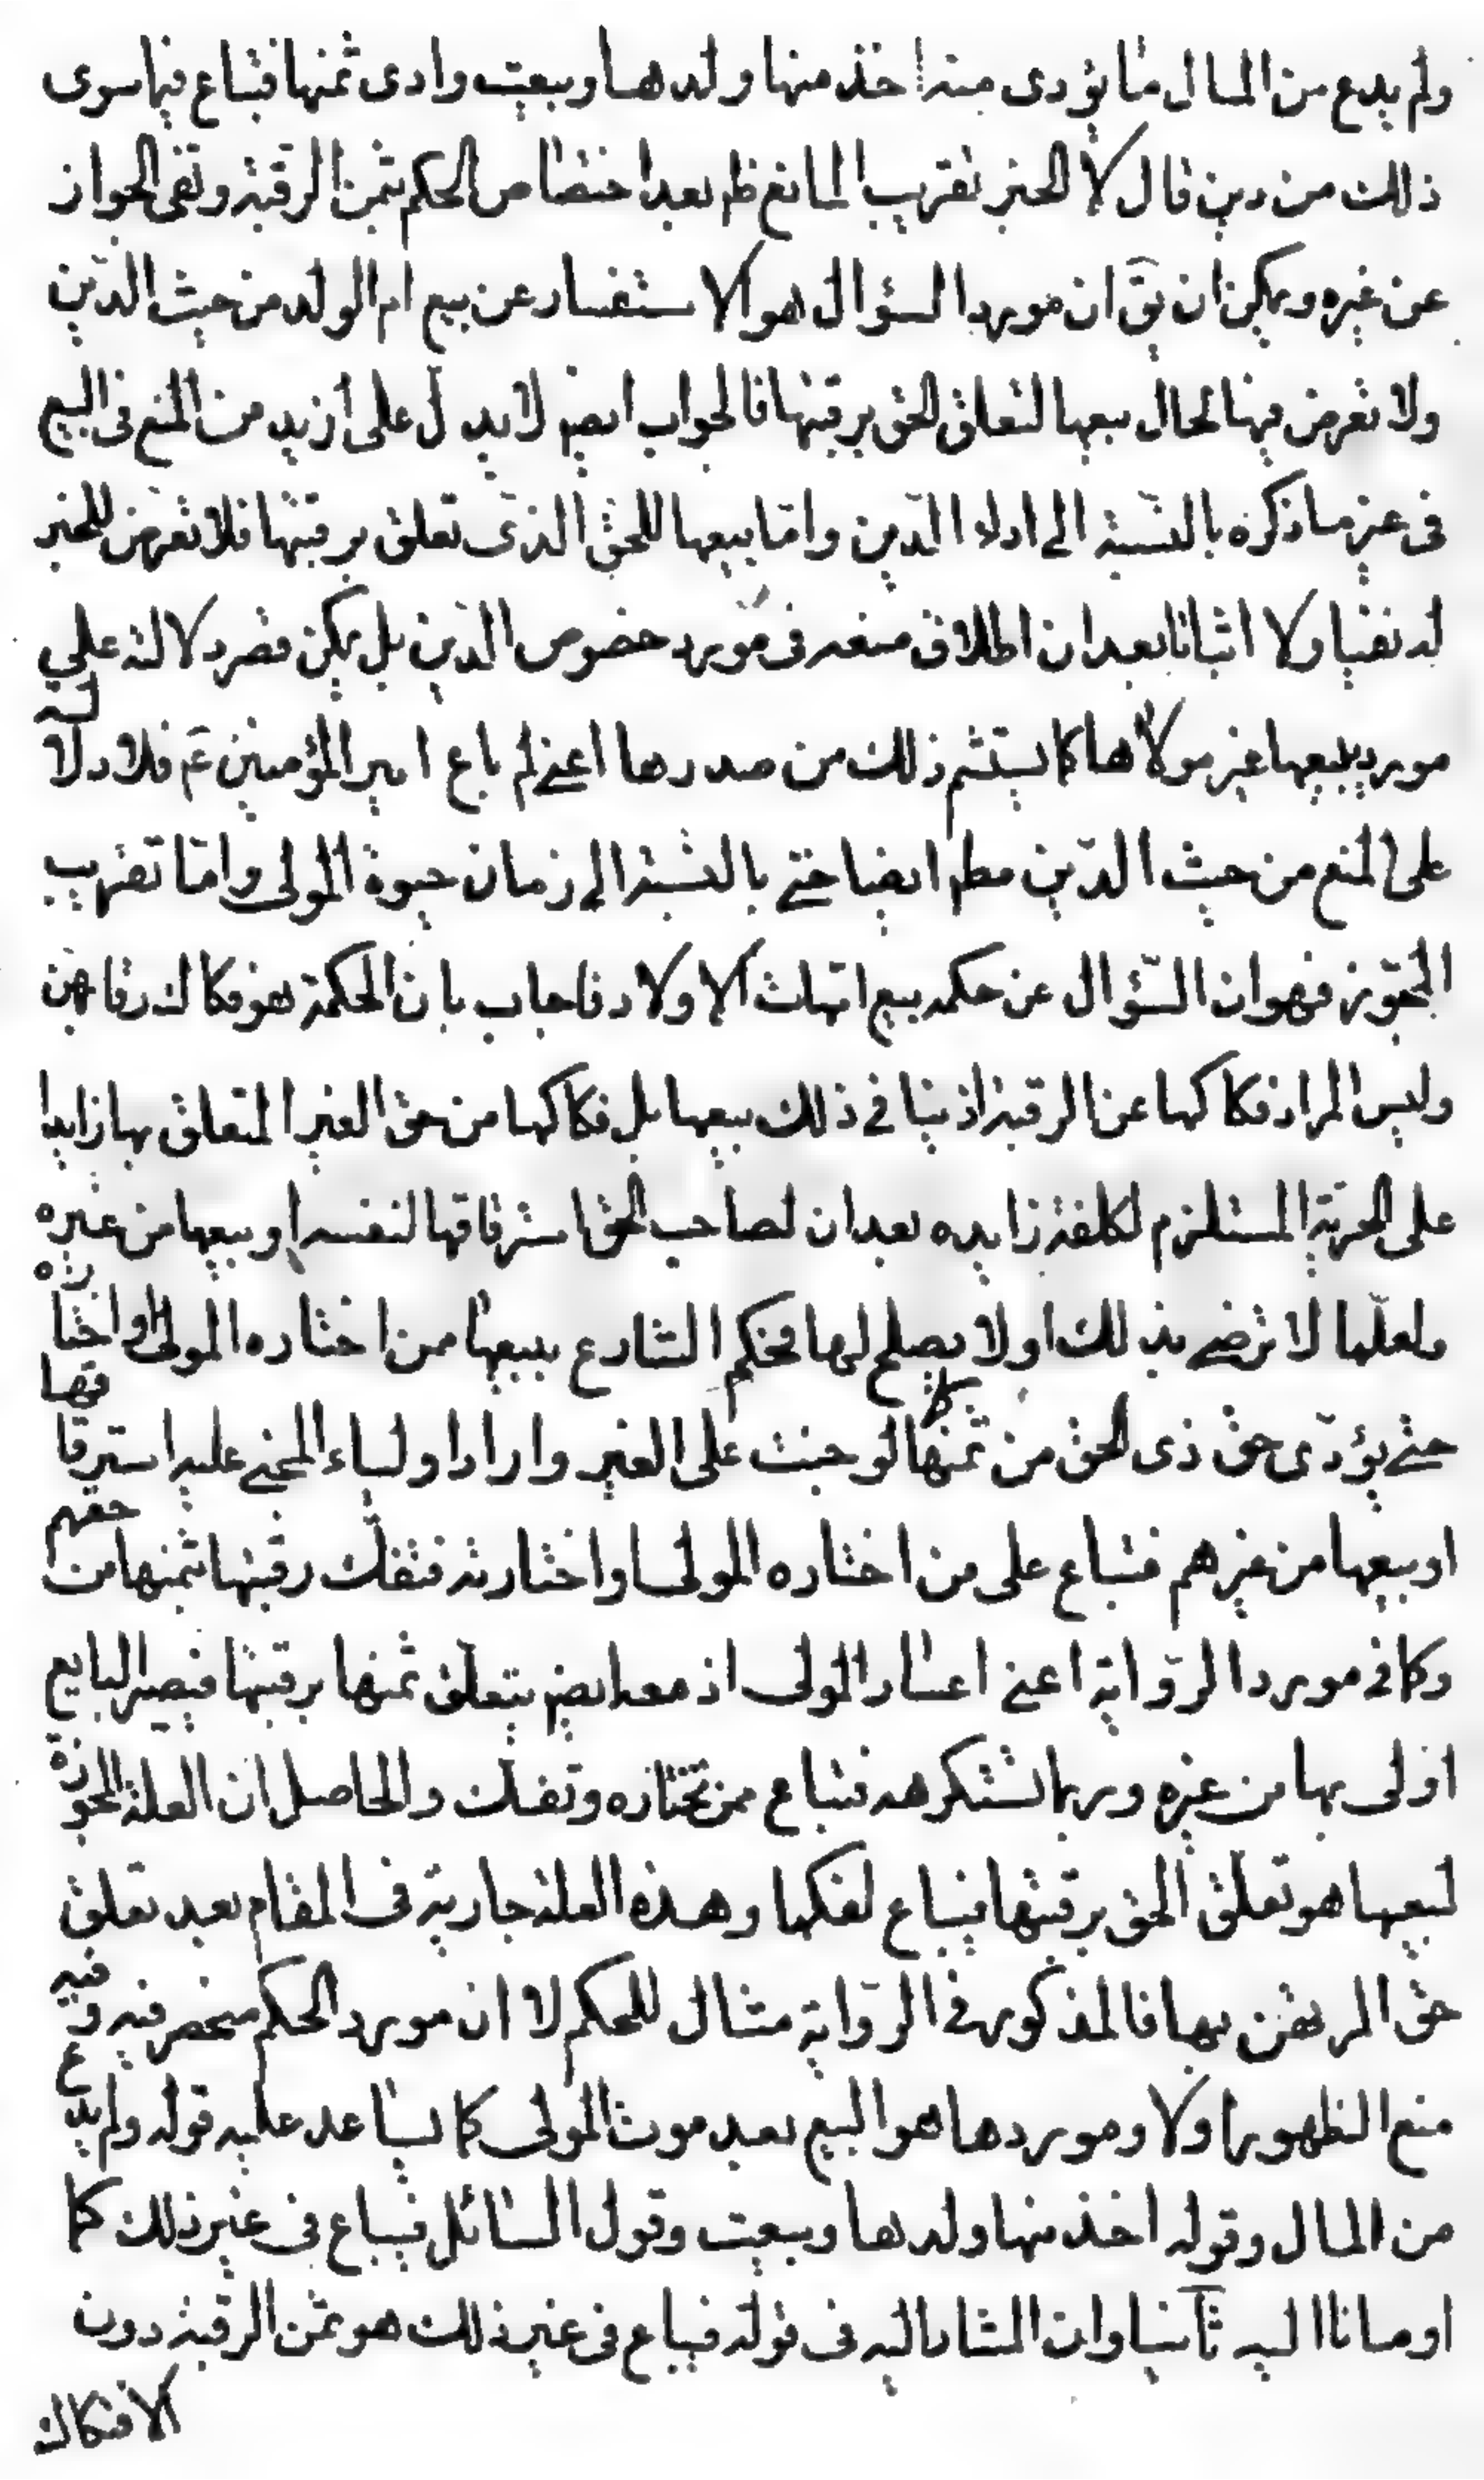 ولم يدع من المال ما يؤدى عنه اخذ منها ولدها وبيعت وادى ثمنها فتباع فيما سوى
ذلك من دين قال لا الخبر تقريب المانع ظم بعد اختصاص الحكم بثمن الرقبة ونفى الجواز
عن غيره ويمكن ان يق ان مورد السؤال هو الاستفسار عن بيع ام الولد من حيث الدّين
ولا تعرض فيها لحال بيعها لتعلق الحق برقبتها فالجواب ايضا لا يدل على ازيد من المنع فى البيع
فى غير ما ذكره بالنسبة الى اداء الدّين وامّا بيعها للحق الذى تعلق برقبتها فلا تعرض للخبر
له نفيا ولا اثباتا بعد ان اطلاق منعه فى مورد خصوص الدين بل يمكن قصر دلالته على
مورد بيعها غير مولاها كما يستشم ذلك من صدرها اعنى لم باع امير المؤمنين ع فلا دلالة
على المنع من حيث الدّين مطم ايضا حتى بالنسبة الى زمان حيوة المولى وامّا تقريب
المجوّز فهو ان السّؤال عن حكمه بيع امّهات الاولاد فاجاب بان الحكمة هو فكاك رقابهن
وليس المراد فكاكها عن الرقية اذ ينافى ذلك بيعها بل فكاكها من حق الغير المتعلق بها زايدا
على الحريّة المستلزم لكلفة زايده بعد ان لصاحب الحق استرقاقها لنفسه او بيعها من غيره
ولعلّها لا ترضى بذلك او لا يصلح لها فحكم الشارع ببيعها ممن اختاره المولى او اختارته
حتى يؤدّى حق ذى الحق من ثمنها كما لو جنت على الغير وارادا ولياء المجنى عليه استرقاقها
او بيعها من غيرهم فتباع على من اختاره المولى او اختارته فتفك رقبتها بثمنها من حقهم
وكما فى مورد الرّواية اعنى اعسار المولى اذ معه ايضا يتعلق ثمنها برقبتها فيصير البايع
اولى بها من غيره وربما تستكرهه فتباع ممن تختاره وتفك والحاصل ان العلة المجوزة
لبيعها هو تعلّق الحق برقبتها فيباع لفكها وهذه العلة جارية فى المقام بعد تعلق
حق المرتهن بها فالمذكور فى الرّواية مثال للحكم لا ان مورد الحكم منحصر فيه وفيه
منع الظهور اولا ومورد ها هو البيع بعد موت المولى كما يساعد عليه قوله ولم يدع
من المال وقوله اخذ منها ولدها وبيعت وقول السّائل فيباع فى غير ذلك كما
اومانا اليه ثانيا وان المشار اليه فى قوله فيباع فى غير ذلك هو ثمن الرقبة دون
الافتكاك